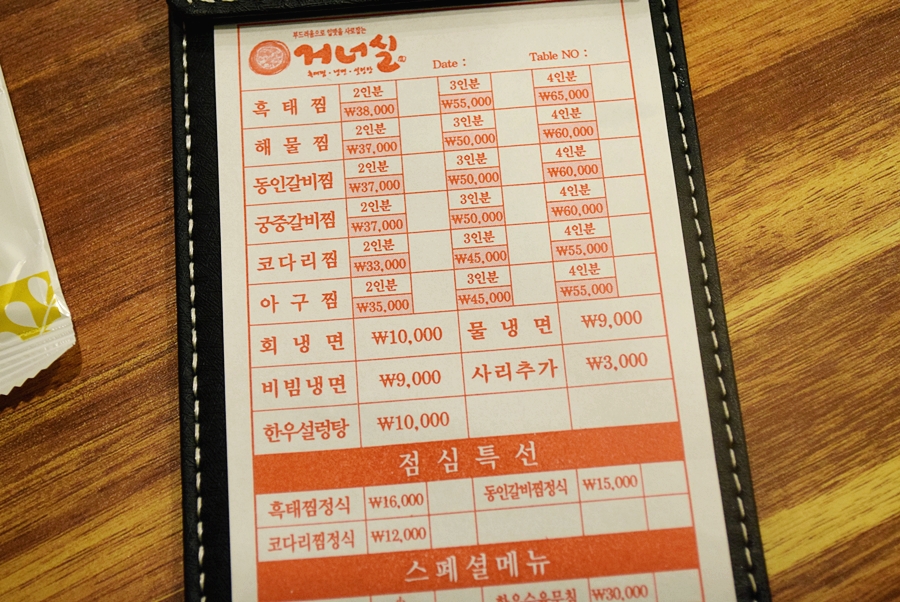 부드러움으로 입맛을 사로잡는
거너실
Date : Table NO :
2인분 3인분 4인분
흑태찜 ₩38,000 ₩55,000 ₩65,000
2인분 3인분 4인분
해물찜 ₩37,000 ₩50,000 ₩60,000
2인분 3인분 4인분
동인갈비찜 ₩37,000 ₩50,000 ₩60,000
2인분 3인분 4인분
궁중갈비찜 ₩37,000 ₩50,000 ₩60,000
2인분 3인분 4인분
코다리찜 ₩33,000 ₩45,000 ₩55,000
2인분 3인분 4인분
아구찜 ₩35,000 ₩45,000 ₩55,000
회냉면 ₩10,000 물냉면 ₩9,000
비빔냉면 ₩9,000 사리추가 ₩3,000
한우설렁탕 ₩10,000
점심특선
흑태찜정식 ₩16,000 동인갈비찜정식 ₩15,000
코다리찜정식 ₩12,000
스페셜메뉴
₩30,000